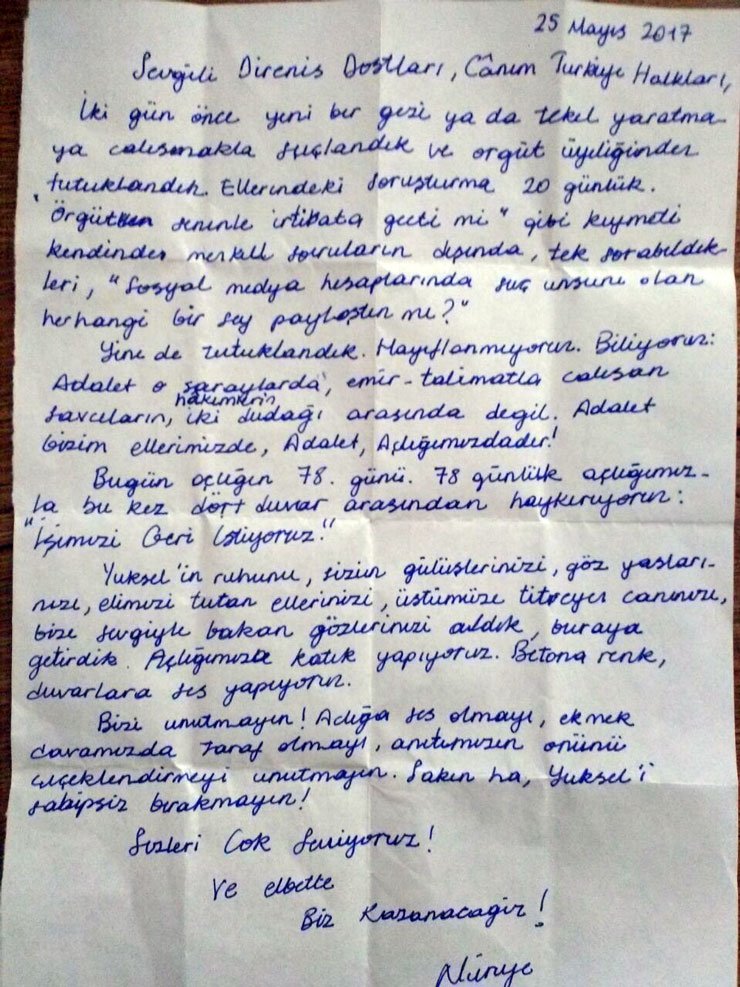 25 Mayıs 2017
Sevgili Direniş Dostları, Cânım Türkiye Halkları,
İki gün önce yeni bir gezi ya da tekel yaratma-
ya çalışmakla suçlandık ve örgüt üyeliğinden
tutuklandık. Ellerindeki soruşturma 20 günlük.
"Örgütten seninle irtibata geçti mi" gibi kıymeti
kendinden menkul soruların dışında, tek sorabildik-
leri, "Sosyal medya hesaplarında suç unsuru olan
herhangi bir şey paylaştın mı?"
Yine de tutuklandık. Hayıflanmıyoruz. Biliyoruz:
Adalet o saraylarda, emir-talimatla çalışan
savcıların, hakimlerin iki dudağı arasında değil. Adalet
bizim ellerimizde, Adalet, Açlığımızdadır!
Bugün açlığın 78. günü. 78 günlük açlığımız-
la bu kez dört duvar arasından haykırıyoruz:
"İşimizi Geri İstiyoruz!"
Yüksel'in ruhunu, sizin gülüşlerinizi, göz yaşları-
nızı, elimizi tutan ellerinizi, üstümüze titreyen canınızı,
bize sevgiyle bakan gözlerinizi aldık, buraya
getirdik. Açlığımıza katık yapıyoruz. Betona renk,
duvarlara ses yapıyoruz.
Bizi unutmayın! Açlığa ses olmayı, ekmek
davamızda taraf olmayı, anıtımızın önünü
çiçeklendirmeyi unutmayın. Sakın ha, Yüksel'i
sahipsiz bırakmayın!
Sizleri Çok Seviyoruz!
Ve elbette
Biz Kazanacağız!
Nuriye